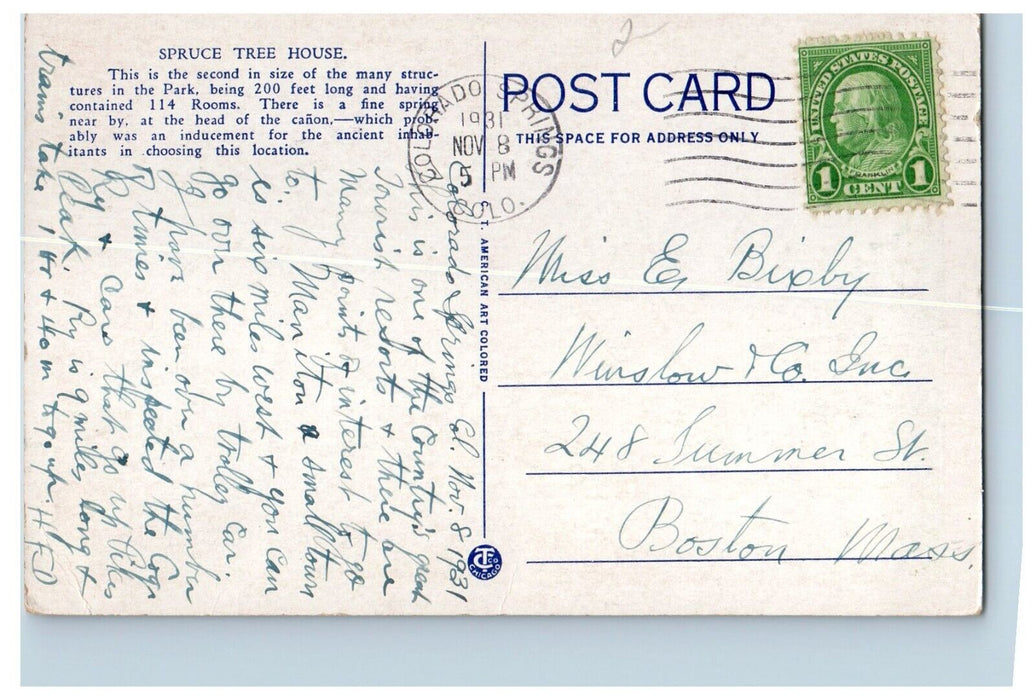 2
SPRUCE TREE HOUSE.
This is the second in size of the many struc-
tures in the Park, being 200 feet long and having
contained 114 Rooms. There is a fine spring
near by, at the head of the cañon,—which prob-
ably was an inducement for the ancient inhab-
itants in choosing this location.
POST CARD
THIS SPACE FOR ADDRESS ONLY
COLORADO SPRINGS
1931
NOV 8
5 PM
COLO.
UNITED STATES POSTAGE
FRANKLIN
1 CENT 1
C. T. AMERICAN ART COLORED
CTCO
CHICAGO
Miss E. Bixby
Winslow & Co. Inc
248 Summer St.
Boston Mass.
Colorado Springs Col. Nov. 8 1931
This is one of the Country's great
Tourist resorts & there are
many points of interest to go
to. Maniton a small town
is six miles west & you can
go over there by trolley car.
I have been over a number
of times & inspected the Cog
Ry & Cars that go up Pikes
Peak. Ry is 9 miles long &
trains take 1 hr & 40 m to go up. HFD